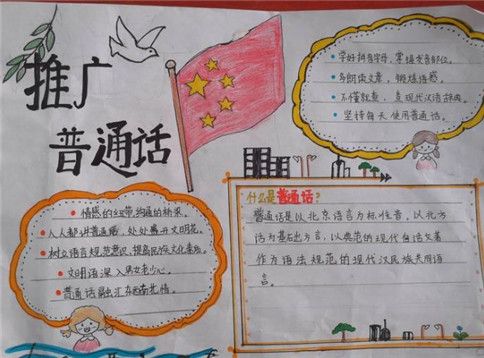 推广
普通话
学好拼音字母，掌握发音部位。
多朗读文章，锻炼语感。
不懂就意，查现代汉语辞典。
坚持每天使用普通话。
情感的纽带，沟通的桥梁。
人人都讲普通话，处处盛开文明花。
树立语言规范意识，提高民族文化素质。
文明语深入男女老少心。
普通话融汇东西南北情。
什么是普通话？
普通话是以北京语言为标准音，以北方
话为基础方言，以典范的现代白话文著
作为语法规范的现代汉民族共同语
言。